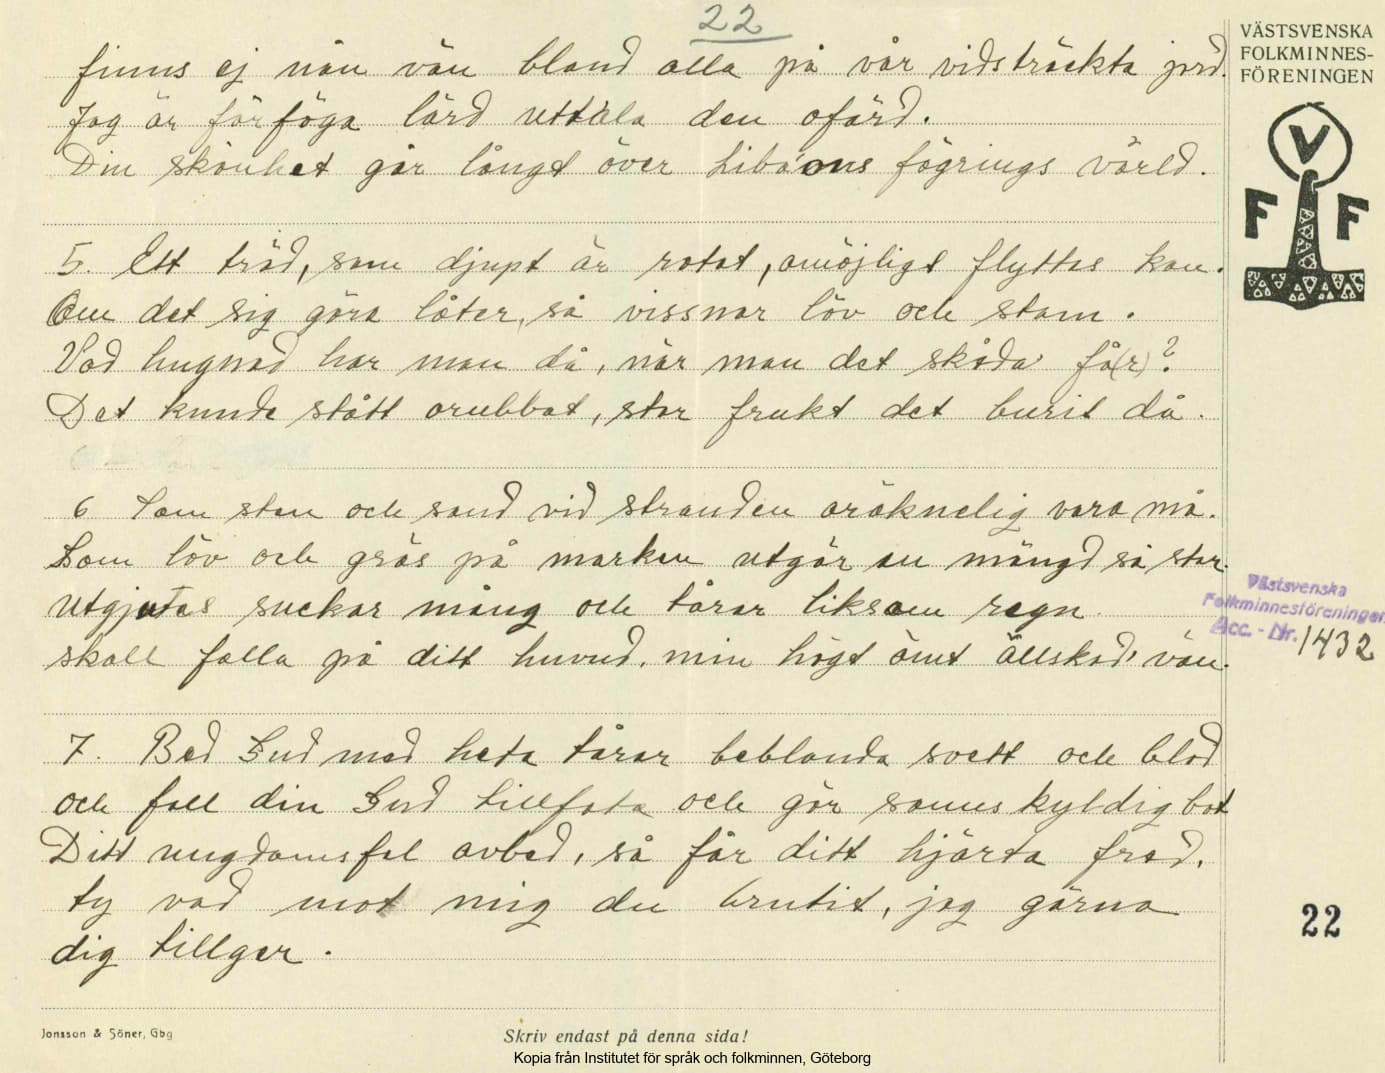 22
finns ej nån vän bland alla på vår vidsträckta jord.
Jag är för föga lärd uttala den ofärd.
Din skönhet går långt över Libanons fägrings värld.
5. Ett träd, som djupt är rotat, omöjligt flyttas kan.
Om det sig göra låter, så vissnar löv och stam.
Vad hugnad har man då, när man det skåda' få(r)?
Det kunde stått orubbat, stor frukt det burit då.
6 Som sten och sand vid stranden oräknelig vara må.
Som löv och gräs på marken utgör en mängd så stor.
Utgjutas suckar mång och tårar liksom regn
skall falla på ditt huvud, min högt ömt älskad' vän.
7. Bed Gud med heta tårar beblanda svett och blod
och fall din Gud tillfota och gör sannskyldig bot
Ditt ungdomsfel avbed, så får ditt hjärta fred,
ty vad mot mig du brutit, jag gärna
dig tillger.
VÄSTSVENSKA
FOLKMINNES-
FÖRENINGEN
V
F F
Västsvenska
Folkminnesföreningen
Acc. - Nr. 1432
22
Jonsson & Söner, Gbg
Skriv endast på denna sida!
Kopia från Institutet för språk och folkminnen, Göteborg